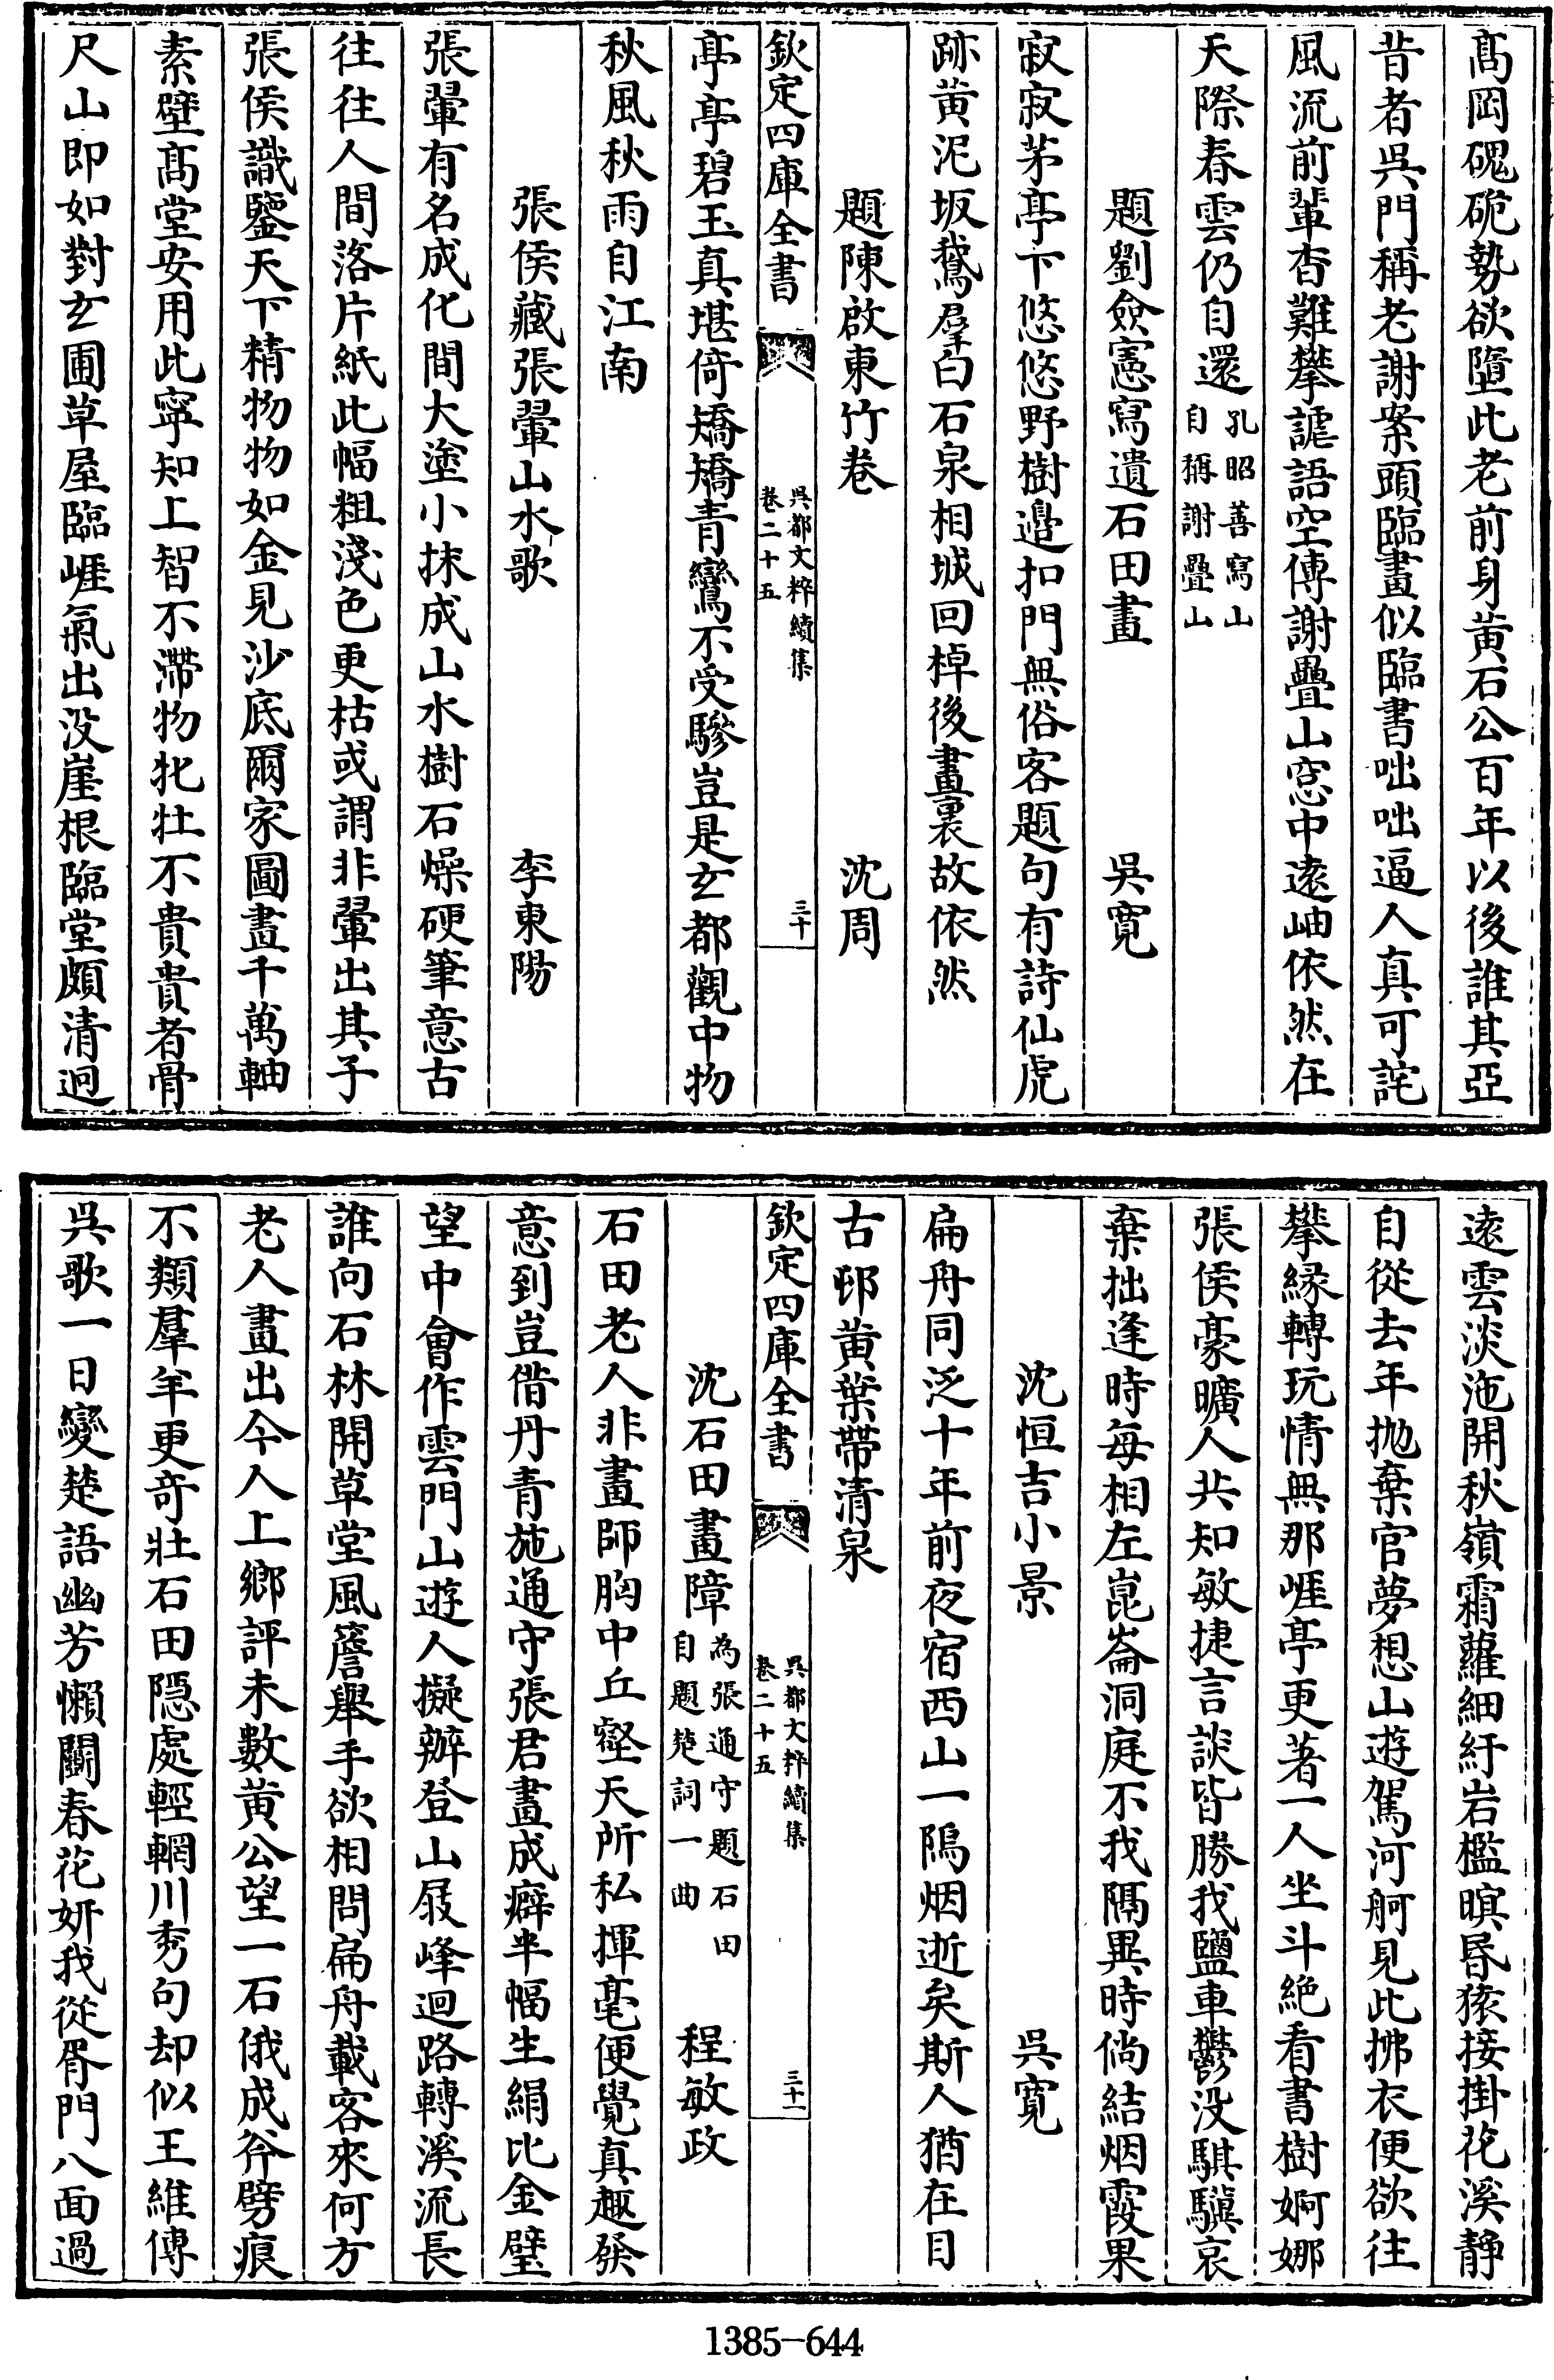 髙岡磈硊勢欲墮此老前身黄石公百年以後誰其亞
昔者吳門稱老謝案頭臨畫似臨書咄咄逼人真可詫
風流前輩杳難攀謔語空傳謝疊山窓中逺岫依然在
天際春雲仍自還孔昭善寫山
自稱謝疊山
題劉僉憲寫遺石田畫 吳寛
寂寂茅亭下悠悠野樹邉扣門無俗客題句有詩仙虎
跡黄泥坂鵞羣白石泉相城回棹後畫裏故依然
題陳啟東竹巻 沈周
欽定四庫全書 吳都文粹續集
卷二十五 三十
亭亭碧玉真堪倚矯矯青鸞不受驂豈是玄都觀中物
秋風秋雨自江南
張侯藏張翬山水歌 李東陽
張翬有名成化間大塗小抹成山水樹石燥硬筆意古
往往人間落片紙此幅粗淺色更枯或謂非翬出其子
張侯識鑒天下精物物如金見沙底爾家圖畫千萬軸
素壁髙堂安用此寧知上智不滯物牝牡不貴貴者骨
尺山即如對玄圃草屋臨崕氣出没崖根臨堂頗清迥
逺雲淡沲開秋嶺霜蘿細紆岩檻暝昬猿接掛花溪静
自從去年抛棄官夢想山遊駕河舸見此拂衣便欲往
攀縁轉玩情無那崕亭更著一人坐斗絶看書樹婀娜
張侯豪曠人共知敏捷言談皆勝我鹽車鬱没騏驥哀
棄拙逢時每相左崑崙洞庭不我隔異時倘結烟霞果
沈恒吉小景 吳寛
扁舟同泛十年前夜宿西山一隝烟逝矣斯人猶在目
古邨黄葉帶清泉
欽定四庫全書 吳都文粹續集
卷二十五 三十一
沈石田畫障為張通守題石田
自題楚詞一曲 程敏政
石田老人非畫師胸中丘壑天所私揮毫便覺真趣發
意到豈借丹青施通守張君畫成癖半幅生絹比金璧
望中會作雲門山遊人擬辦登山屐峰迴路轉溪流長
誰向石林開草堂風簷舉手欲相問扁舟載客來何方
老人畫出今人上鄉評未數黄公望一石俄成斧劈痕
不類羣羊更奇壯石田隠處輕輞川秀句却似王維傳
吳歌一日變楚語幽芳懶鬭春花妍我從胥門八面過
1385-644